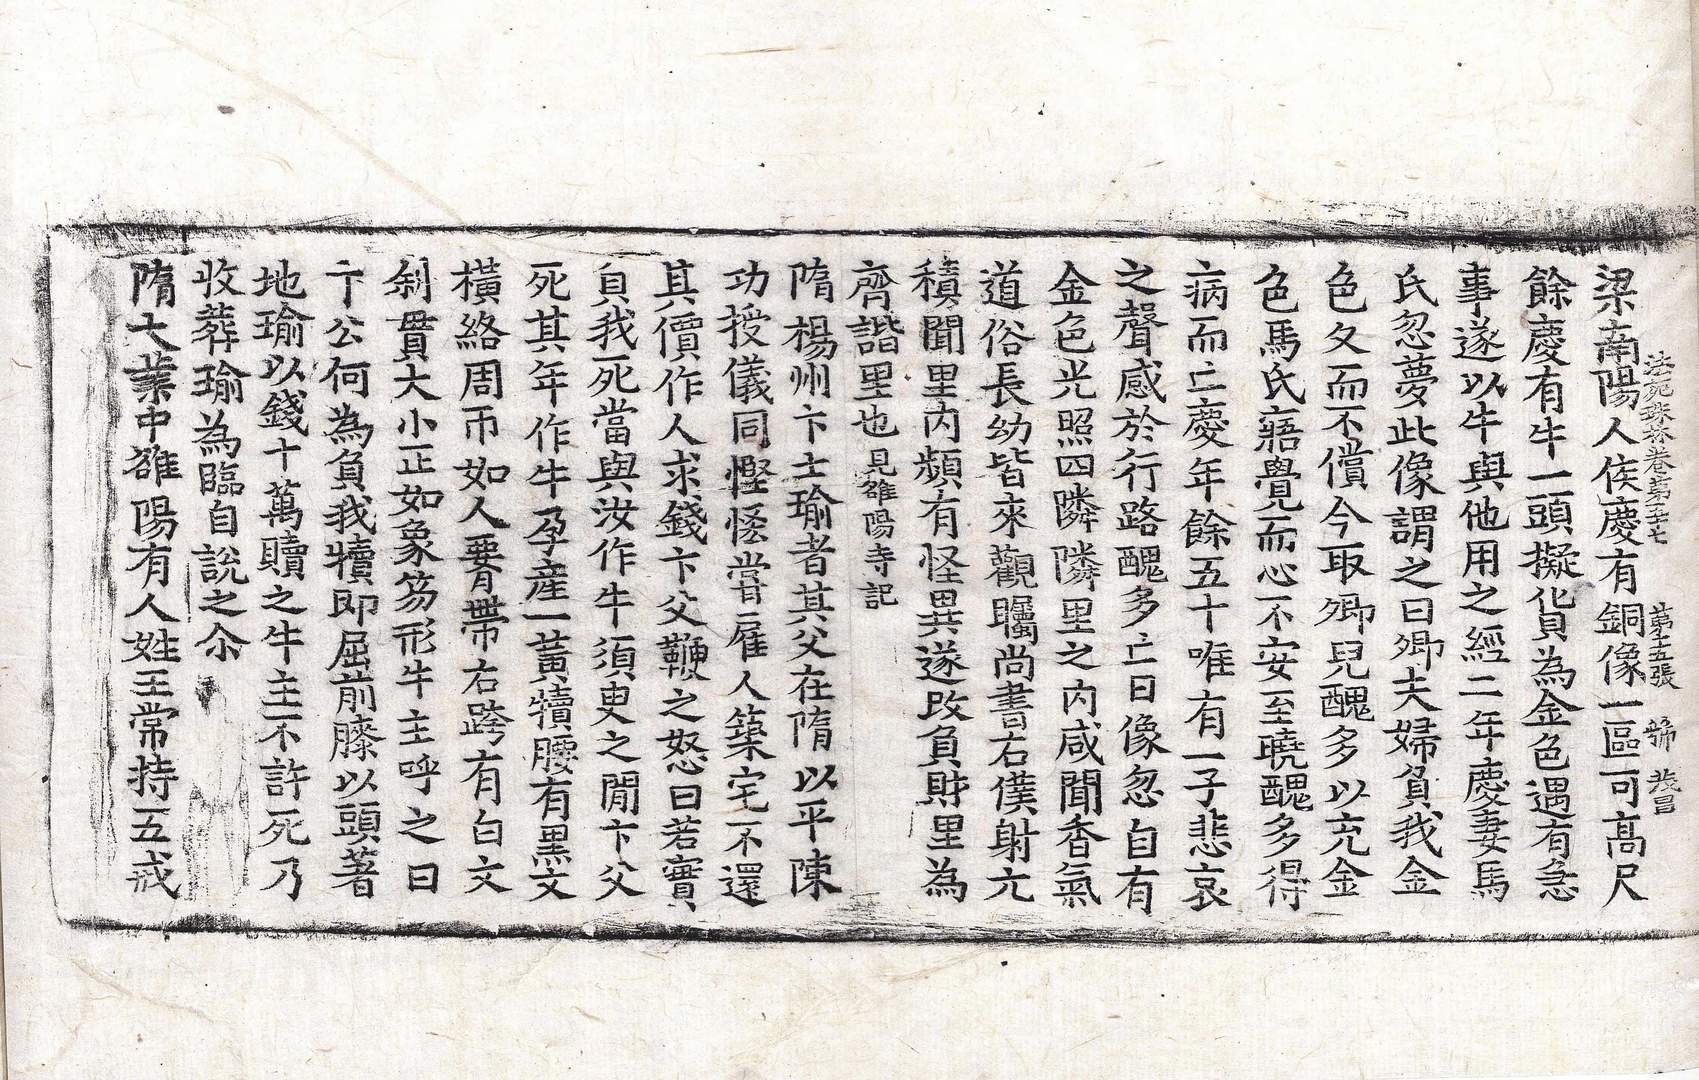 法苑珠林卷第五十七 第十五張 號 茂昌
梁南陽人侯慶有銅像一區可高尺
餘慶有牛一頭擬貨為金色遇有急
事遂以牛與他用之經二年慶妻馬
氏忽夢此像謂之曰卿夫婦負我金
色久而不償今取卿兒醜多以充金
色馬氏寤覺而心不安至曉醜多得
病而亡慶年餘五十唯有一子悲哀
之聲感於行路醜多亡日像忽自有
金色光照四隣隣里之內咸聞香氣
道俗長幼皆來觀矚尚書右僕射元
積聞里內頻有怪異遂改負財里為
齊諧里也見雒陽寺記
隋楊州卞士瑜者其父在隋以平陳
功授儀同慳悋嘗雇人築宅不還
其價作人求錢卞父鞭之怒曰若實
負我死當與汝作牛須臾之閒卞父
死其年作牛孕產一黃犢腰有黑文
橫絡周帀如人要帶右跨有白文
斜貫大小正如象笏形牛主呼之曰
卞公何為負我犢即屈前膝以頭著
地瑜以錢十萬贖之牛主不許死乃
收葬瑜為臨自說之尒
隋大業中雒陽有人姓王常持五戒